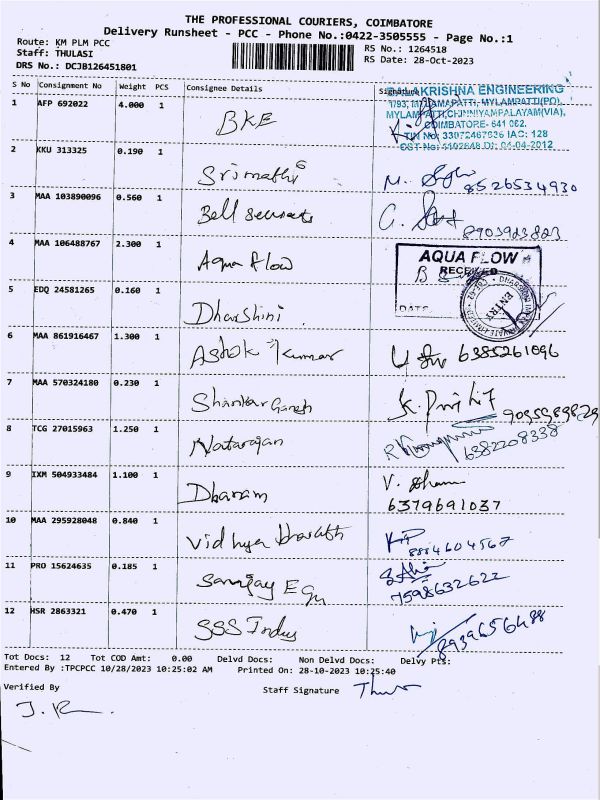 THE PROFESSIONAL COURIERS, COIMBATORE
Delivery Runsheet - PCC - Phone No.:0422-3505555 - Page No.:1
Route: KM PLM PCC
Staff: THULASI
DRS No.: DCJB126451801
RS No.: 1264518
RS Date: 28-Oct-2023
S No Consignment No Weight PCS Consignee Details Signature
KRISHNA ENGINEERING
COIMBATORE- 641 062.
1 AFP 692022 4.000 1 BKE
2 KKU 313325 0.190 1 Srimathi M. 8526534930
3 MAA 103890096 0.560 1 Bell 8903923823
4 MAA 106488767 2.300 1 Aqua flow
AQUA FLOW
RECEIVED
DATE
ENTRY
5 EDQ 24581265 0.160 1 Dharshini.
6 MAA 861916467 1.300 1 Ashok Kumar 6385261096
7 MAA 570324180 0.230 1 Shankar Ganesh K.
8 TCG 27015963 1.250 1 Natarajan 6382208338
9 IXM 504933484 1.100 1 Dharam V.
6379691037
10 MAA 295928048 0.840 1 Vidhya Bharath 8884604567
11 PRO 15624635 0.185 1 Sanjay E 7598632622
12 HSR 2863321 0.470 1 SSS Indus
Tot Docs: 12 Tot COD Amt: 0.00 Delvd Docs: Non Delvd Docs: Delvy Pts:
Entered By :TPCPCC 10/28/2023 10:25:02 AM Printed On: 28-10-2023 10:25:40
Verified By Staff Signature